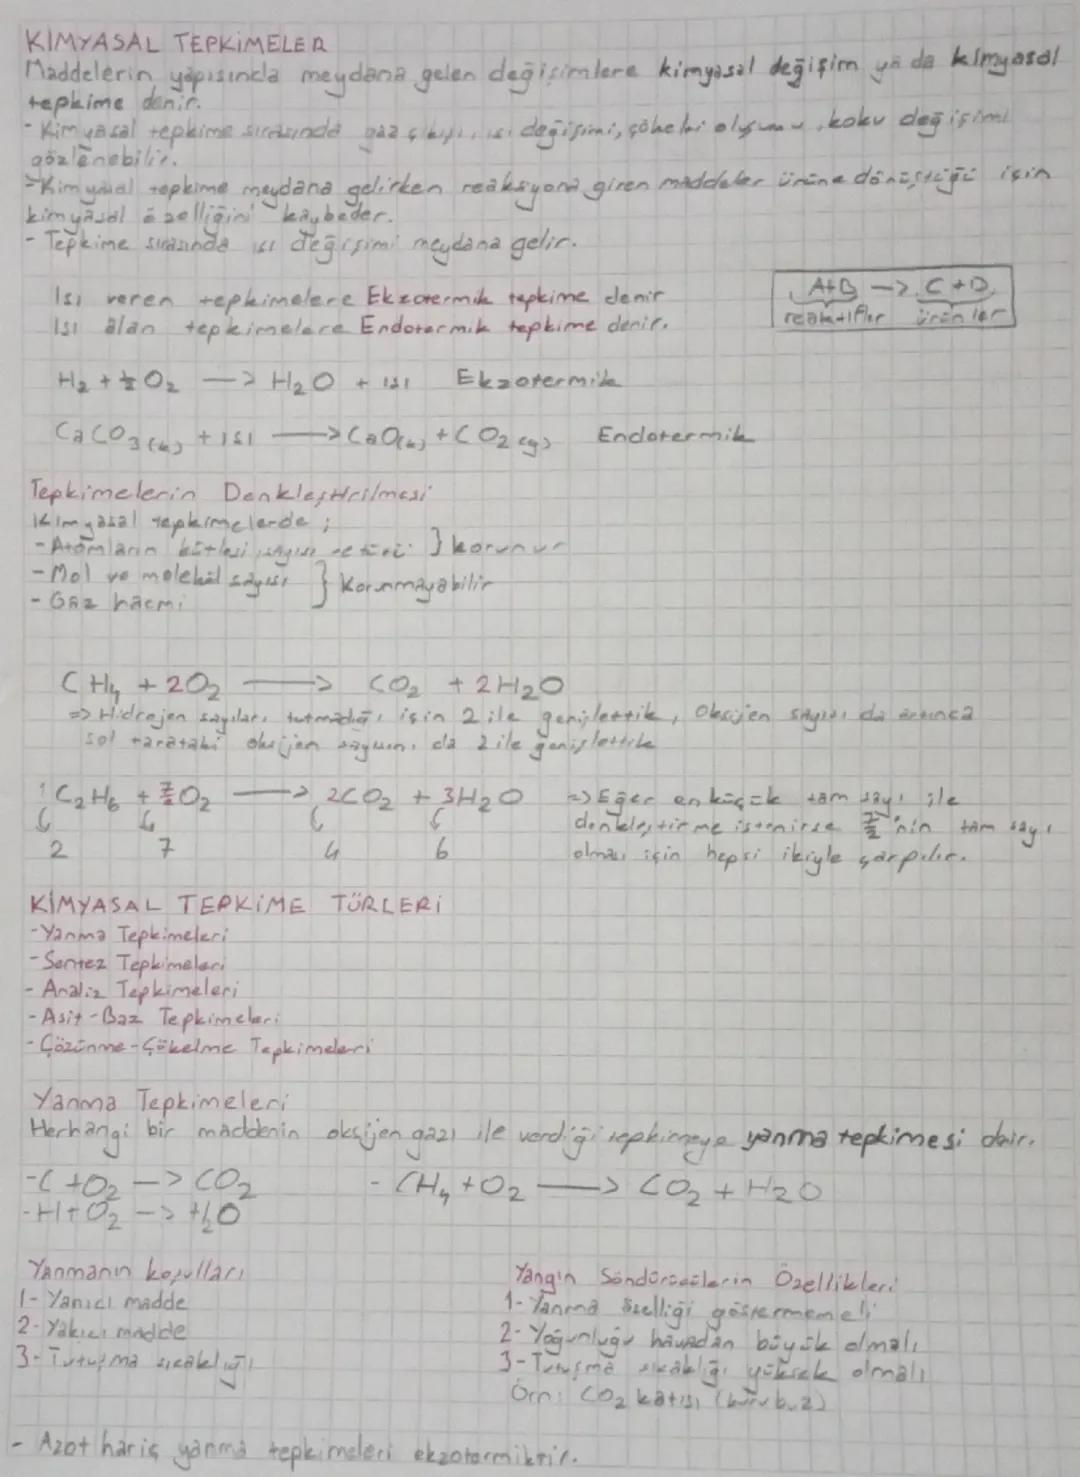 KİMYASAL TEPKİMELER
Maddelerin yapısında meydana gelen değişimlere kimyasal değişim ya da kimyasal
tepkime denir.
- Kimyasal tepkime sırasında gaz çıkışı, ısı değişimi, çökelti oluşumu, koku değişimi
gözlenebilir.
- Kimyasal tepkime meydana gelirken reaksiyona giren maddeler ürüne dönüştüğü için
kimyasal özelliğini kaybeder.
- Tepkime sırasında ısı değişimi meydana gelir.
A+B -> C+D
reaktifler ürünler
Isı veren tepkimelere Ekzotermik tepkime denir
Isı alan tepkimelere Endotermik tepkime denir.
H₂ + ½ O₂ —> H₂O + ısı Ekzotermik
CaCO₃(k) + ısı —> CaO(k) + CO₂(g) Endotermik
Tepkimelerin Denkleştirilmesi
Kimyasal tepkimelerde ;
- Atomların kütlesi, sayısı ve türü } korunur
- Mol ve molekül sayısı } Korunmayabilir
- Gaz hacmi
CH₄ + 2O₂ —> CO₂ + 2H₂O
=> Hidrojen sayıları tutmadığı için 2 ile genişlettik, Oksijen sayısı da artınca
sol taraftaki oksijen sayısını da 2 ile genişlettik
1 C₂H₆ + 7/2 O₂ —> 2CO₂ + 3H₂O => Eğer en küçük tam sayı ile
denkleştirme istenirse 7/2 'nin tam sayı
2 7 4 6 olması için hepsi ikiyle çarpılır.
KİMYASAL TEPKİME TÜRLERİ
- Yanma Tepkimeleri
- Sentez Tepkimeleri
- Analiz Tepkimeleri
- Asit-Baz Tepkimeleri
- Çözünme-Çökelme Tepkimeleri
Yanma Tepkimeleri
Herhangi bir maddenin oksijen gazı ile verdiği tepkimeye yanma tepkimesi denir.
- C + O₂ —> CO₂ - CH₄ + O₂ —> CO₂ + H₂O
- H + O₂ —> H₂O
Yanmanın koşulları
1- Yanıcı madde
2- Yakıcı madde
3- Tutuşma sıcaklığı
Yangın Söndürücülerin Özellikleri
1- Yanma özelliği göstermemeli
2- Yoğunluğu havadan büyük olmalı
3- Tutuşma sıcaklığı yüksek olmalı
Örn: CO₂ katısı (kuru buz)
- Azot hariç yanma tepkimeleri ekzotermiktir.